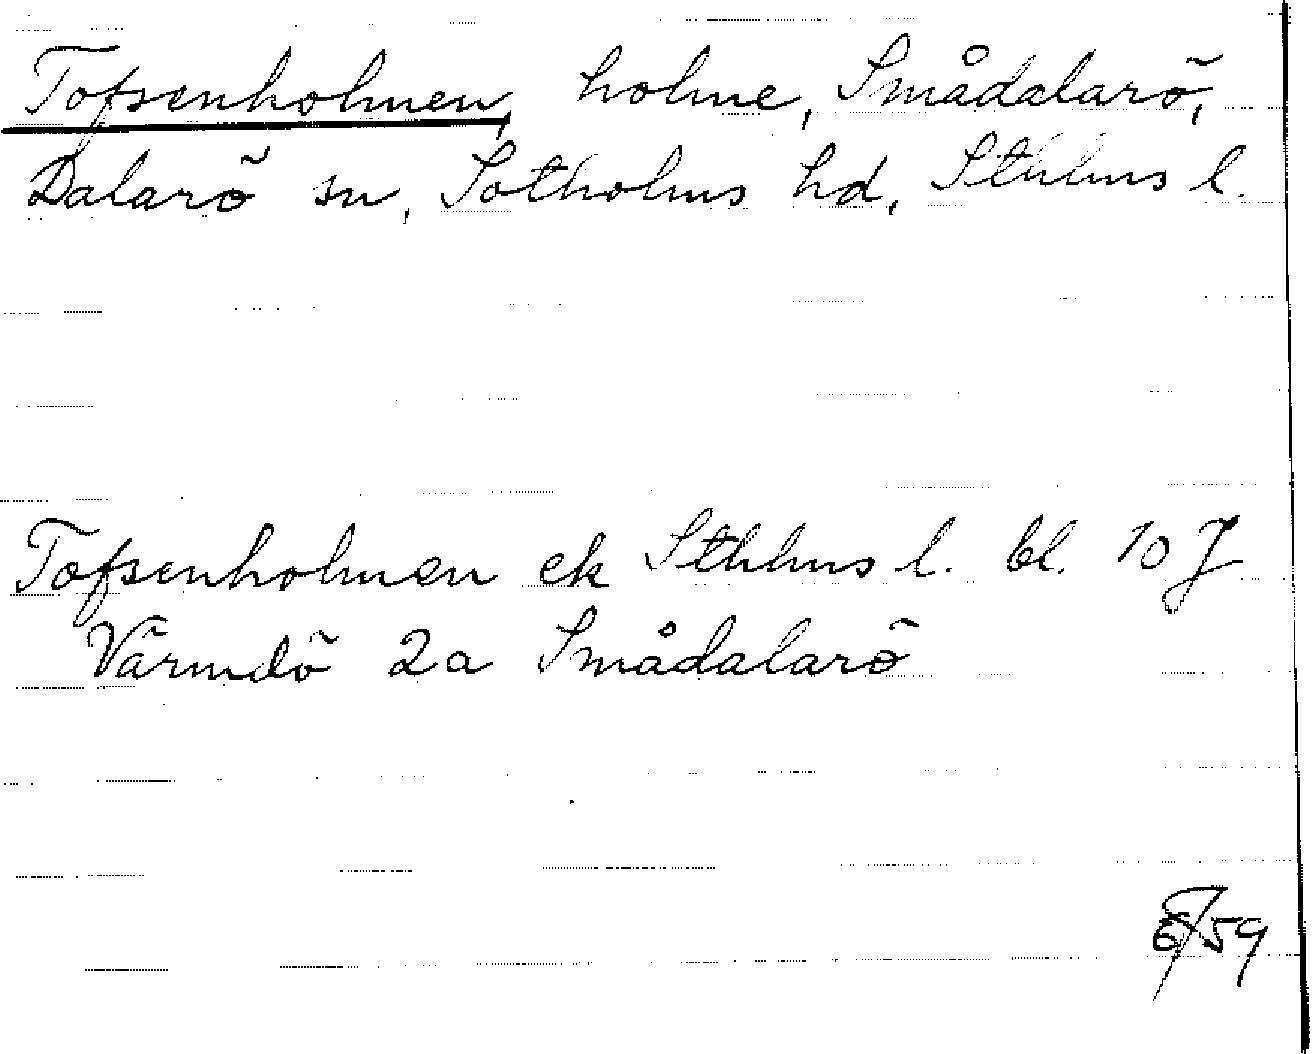 Tofsenholmen, holme, Smådalarö,
Dalarö sn, Sotholms hd, Sthlms l.
Tofsenholmen ek Sthlms l. bl. 10 J
Värmdö 2a Smådalarö
59